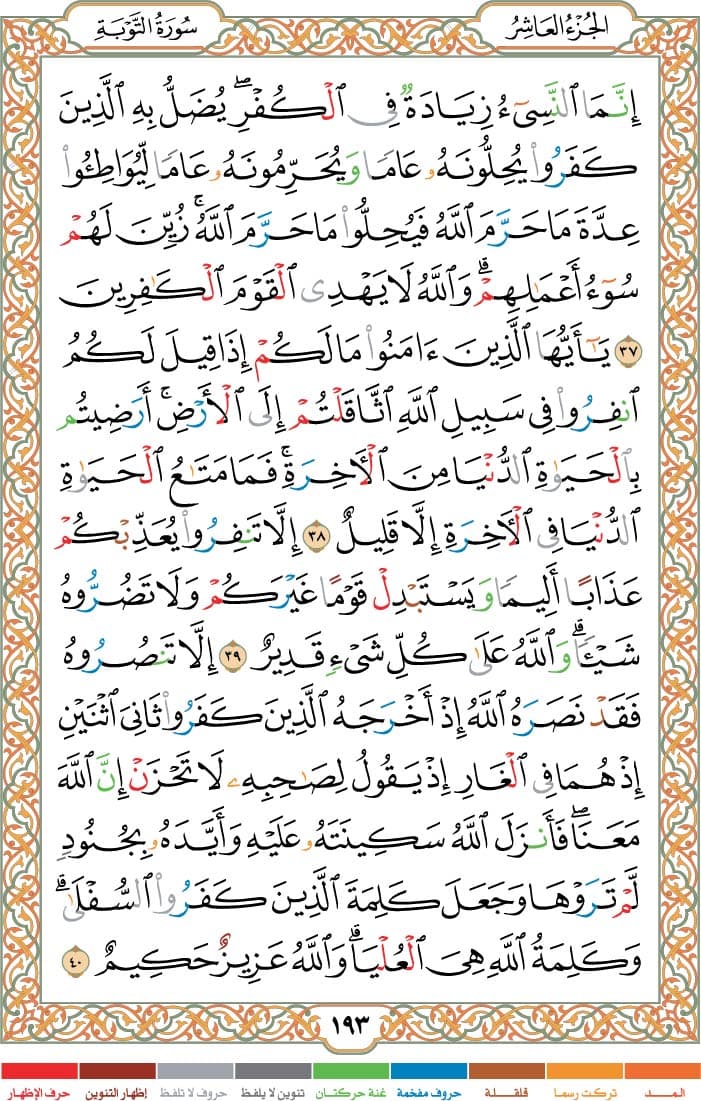 الجُزْءُ العَاشِرُ
سُورَةُ التَّوْبَةِ
إِنَّمَا ٱلنَّسِىٓءُ زِيَادَةٌ فِى ٱلْكُفْرِ ۖ يُضَلُّ بِهِ ٱلَّذِينَ
كَفَرُوا۟ يُحِلُّونَهُۥ عَامًا وَيُحَرِّمُونَهُۥ عَامًا لِّيُوَاطِـُٔوا۟
عِدَّةَ مَا حَرَّمَ ٱللَّهُ فَيُحِلُّوا۟ مَا حَرَّمَ ٱللَّهُ ۚ زُيِّنَ لَهُمْ
سُوٓءُ أَعْمَـٰلِهِمْ ۗ وَٱللَّهُ لَا يَهْدِى ٱلْقَوْمَ ٱلْكَـٰفِرِينَ
٣٧ يَـٰٓأَيُّهَا ٱلَّذِينَ ءَامَنُوا۟ مَا لَكُمْ إِذَا قِيلَ لَكُمُ
ٱنفِرُوا۟ فِى سَبِيلِ ٱللَّهِ ٱثَّاقَلْتُمْ إِلَى ٱلْأَرْضِ ۚ أَرَضِيتُم
بِٱلْحَيَوٰةِ ٱلدُّنْيَا مِنَ ٱلْـَٔاخِرَةِ ۚ فَمَا مَتَـٰعُ ٱلْحَيَوٰةِ
ٱلدُّنْيَا فِى ٱلْـَٔاخِرَةِ إِلَّا قَلِيلٌ ٣٨ إِلَّا تَنفِرُوا۟ يُعَذِّبْكُمْ
عَذَابًا أَلِيمًا وَيَسْتَبْدِلْ قَوْمًا غَيْرَكُمْ وَلَا تَضُرُّوهُ
شَيْـًٔا ۗ وَٱللَّهُ عَلَىٰ كُلِّ شَىْءٍ قَدِيرٌ ٣٩ إِلَّا تَنصُرُوهُ
فَقَدْ نَصَرَهُ ٱللَّهُ إِذْ أَخْرَجَهُ ٱلَّذِينَ كَفَرُوا۟ ثَانِىَ ٱثْنَيْنِ
إِذْ هُمَا فِى ٱلْغَارِ إِذْ يَقُولُ لِصَـٰحِبِهِۦ لَا تَحْزَنْ إِنَّ ٱللَّهَ
مَعَنَا ۖ فَأَنزَلَ ٱللَّهُ سَكِينَتَهُۥ عَلَيْهِ وَأَيَّدَهُۥ بِجُنُودٍ
لَّمْ تَرَوْهَا وَجَعَلَ كَلِمَةَ ٱلَّذِينَ كَفَرُوا۟ ٱلسُّفْلَىٰ ۗ
وَكَلِمَةُ ٱللَّهِ هِىَ ٱلْعُلْيَا ۗ وَٱللَّهُ عَزِيزٌ حَكِيمٌ ٤٠
١٩٣
المــد تركت رسما قلقلة حروف مفخمة غنة حركتان تنوين لا يلفظ حروف لا تلفظ إظهار التنوين حرف الإظهار